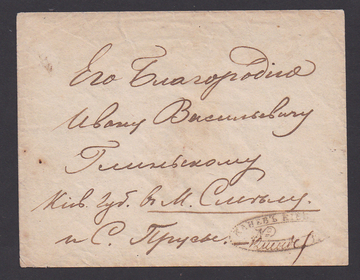 Его Благородію
Ивану Васильевичу
Глинському
Кіев. Губ. въ М. Смѣлу.
и С. Прусы.
КАНЕВЪ
12